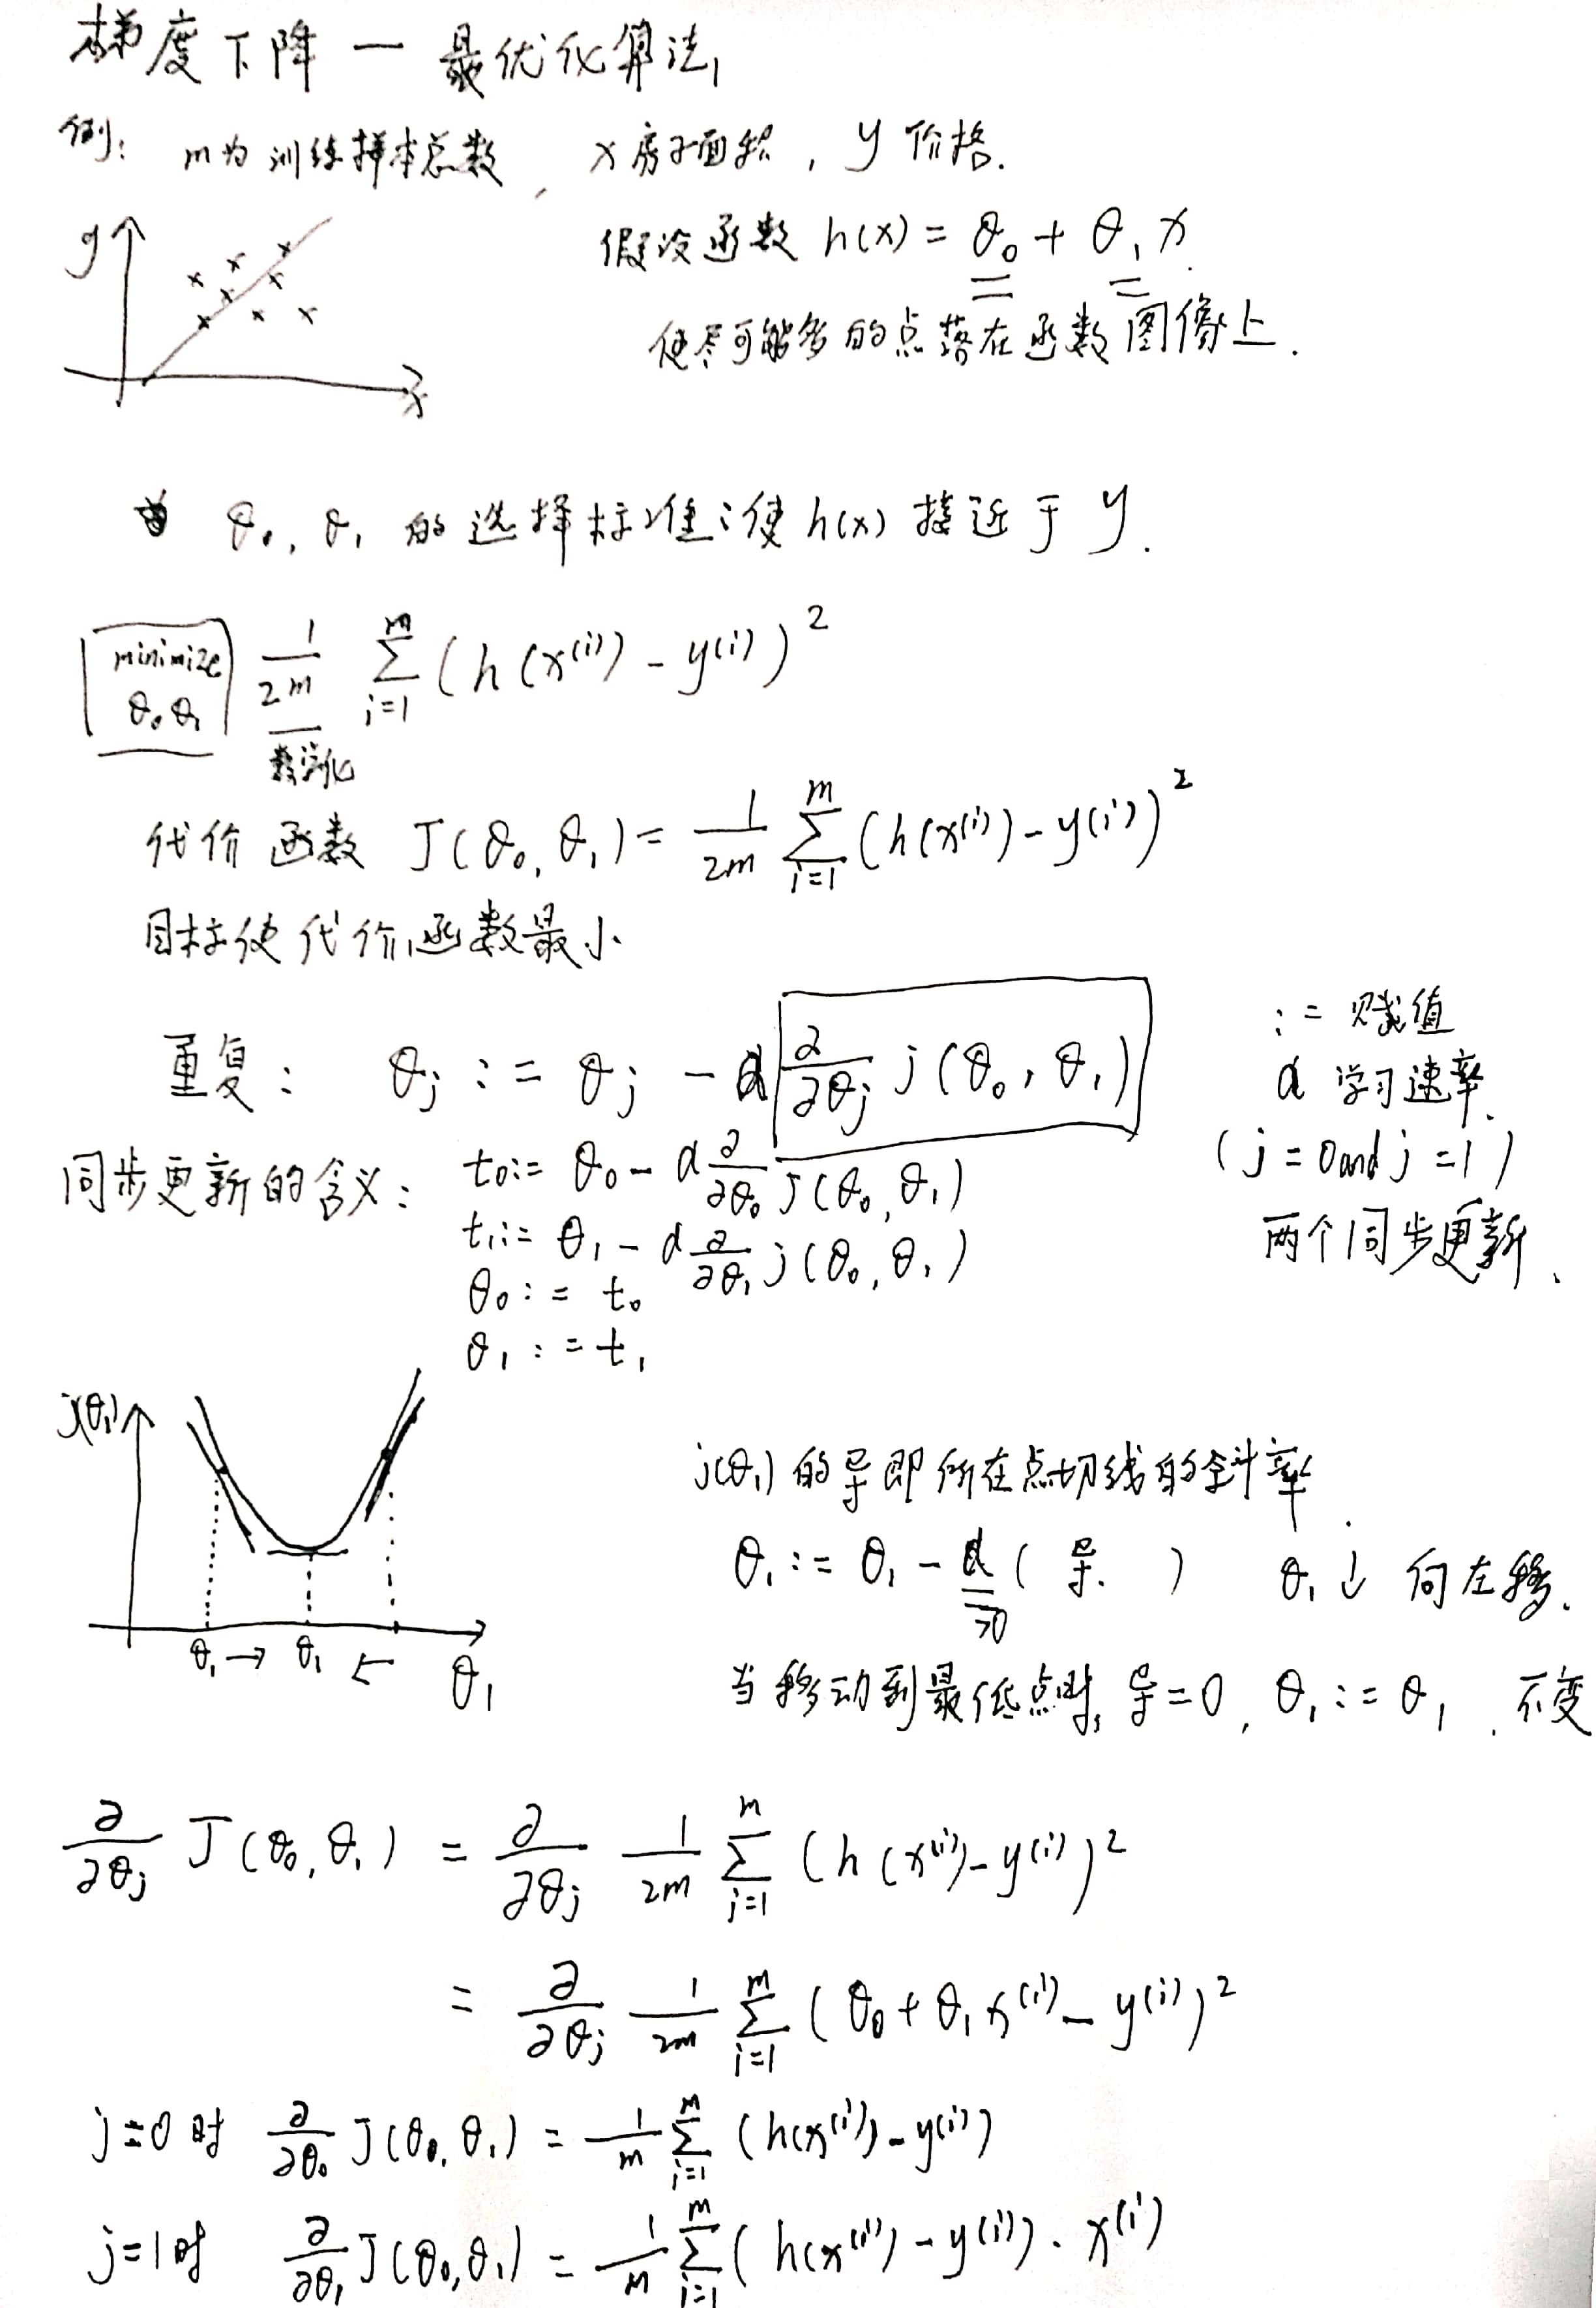 梯度下降 — 最优化算法
例: m为训练样本总数, x房子面积, y 价格.
y
x
假设函数 h(x) = θ₀ + θ₁x.
使尽可能多的点落在函数图像上.
θ₀, θ₁ 的选择标准: 使 h(x) 接近于 y.
minimize θ₀ θ₁ 1/2m ∑_{i=1}^{m} (h(x⁽ⁱ⁾) - y⁽ⁱ⁾)²
代价函数 J(θ₀, θ₁) = 1/2m ∑_{i=1}^{m} (h(x⁽ⁱ⁾) - y⁽ⁱ⁾)²
目标使代价函数最小
重复: θj := θj - α ∂/∂θj j(θ₀, θ₁)
:= 赋值
α 学习速率.
(j = 0 and j = 1)
两个同步更新.
同步更新的含义: t₀ := θ₀ - α ∂/∂θ₀ J(θ₀, θ₁)
t₁ := θ₁ - α ∂/∂θ₁ j(θ₀, θ₁)
θ₀ := t₀
θ₁ := t₁
j(θ₁)
θ₁ → θ₁ ← θ₁
j(θ₁) 的导即所在点切线的斜率.
θ₁ := θ₁ - α (导.) θ₁ ↓ 向左移.
>0
当移动到最低点时, 导=0, θ₁ := θ₁. 不变
∂/∂θj J(θ₀, θ₁) = ∂/∂θj 1/2m ∑_{i=1}^{m} (h(x⁽ⁱ⁾) - y⁽ⁱ⁾)²
= ∂/∂θj 1/2m ∑_{i=1}^{m} (θ₀ + θ₁x⁽ⁱ⁾ - y⁽ⁱ⁾)²
j=0时 ∂/∂θ₀ J(θ₀, θ₁) = 1/m ∑_{i=1}^{m} (h(x⁽ⁱ⁾) - y⁽ⁱ⁾)
j=1时 ∂/∂θ₁ J(θ₀, θ₁) = 1/m ∑_{i=1}^{m} (h(x⁽ⁱ⁾) - y⁽ⁱ⁾) · x⁽ⁱ⁾